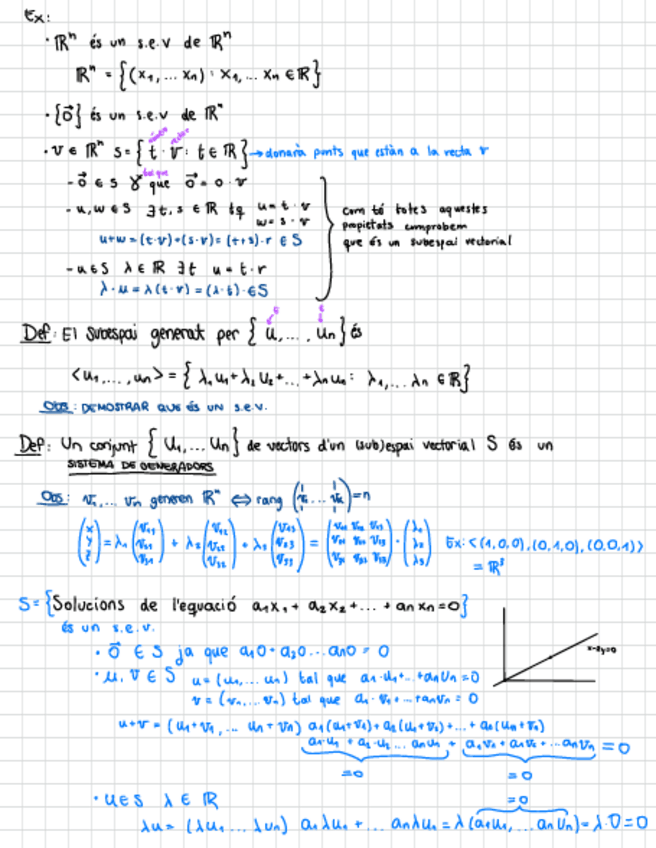 Ex:
· ℝⁿ és un s.e.v de ℝⁿ
ℝⁿ = {(x₁,... xₙ) : x₁,... xₙ ∈ ℝ}
· {0⃗} és un s.e.v de ℝⁿ
· v ∈ ℝⁿ S = { t · v⃗ : t ∈ ℝ } → donarà punts que estàn a la recta v
tal que
- 0⃗ ∈ S ja que 0⃗ = 0 · v
- u, w ∈ S ∃ t, s ∈ ℝ tq u = t · v
w = s · v
u+w = (t·v)+(s·v) = (t+s)·r ∈ S
- u ∈ S λ ∈ ℝ ∃ t u = t · r
λ · u = λ(t·r) = (λ·t) ∈ S
Com té totes aquestes
propietats comprobem
que és un subespai vectorial
Def: El subespai generat per { u, ... , uₙ } és
<u₁, ... , uₙ> = { λ₁u₁ + λ₂u₂ + ... + λₙuₙ : λ₁, ... λₙ ∈ ℝ }
Obs: DEMOSTRAR QUE ÉS UN S.E.V.
Def: Un conjunt { u₁, ... uₙ } de vectors d'un (sub)espai vectorial S és un
SISTEMA DE GENERADORS
Obs: v₁, ... vₙ generen ℝⁿ ⇔ rang (v₁ ... vₖ) = n
(x y z) = λ₁ (v₁₁ v₂₁ v₃₁) + λ₂ (v₁₂ v₂₂ v₃₂) + λ₃ (v₁₃ v₂₃ v₃₃) = (v₁₁ v₁₂ v₁₃ v₂₁ v₂₂ v₂₃ v₃₁ v₃₂ v₃₃) · (λ₁ λ₂ λ₃) Ex: <(1,0,0), (0,1,0), (0,0,1)>
= ℝ³
S = {Solucions de l'equació a₁x₁ + a₂x₂ + ... + aₙxₙ = 0}
és un s.e.v.
· 0⃗ ∈ S ja que a₁0 + a₂0 ... aₙ0 = 0
· u, v ∈ S u = (u₁, ... uₙ) tal que a₁·u₁ + ... + aₙuₙ = 0
v = (v₁, ... vₙ) tal que a₁·v₁ + ... + aₙvₙ = 0
x-2y=0
u+v = (u₁+v₁, ... uₙ+vₙ) a₁(u₁+v₁) + a₂(u₂+v₂) + ... + aₙ(uₙ+vₙ)
a₁·u₁ + a₂·u₂ ... aₙuₙ + a₁v₁ + a₂v₂ + ... aₙvₙ = 0
=0 =0
· u ∈ S λ ∈ ℝ
=0
λu = (λu₁ ... λuₙ) a₁λu₁ + ... aₙλuₙ = λ(a₁u₁, ... aₙuₙ) = λ·0 = 0